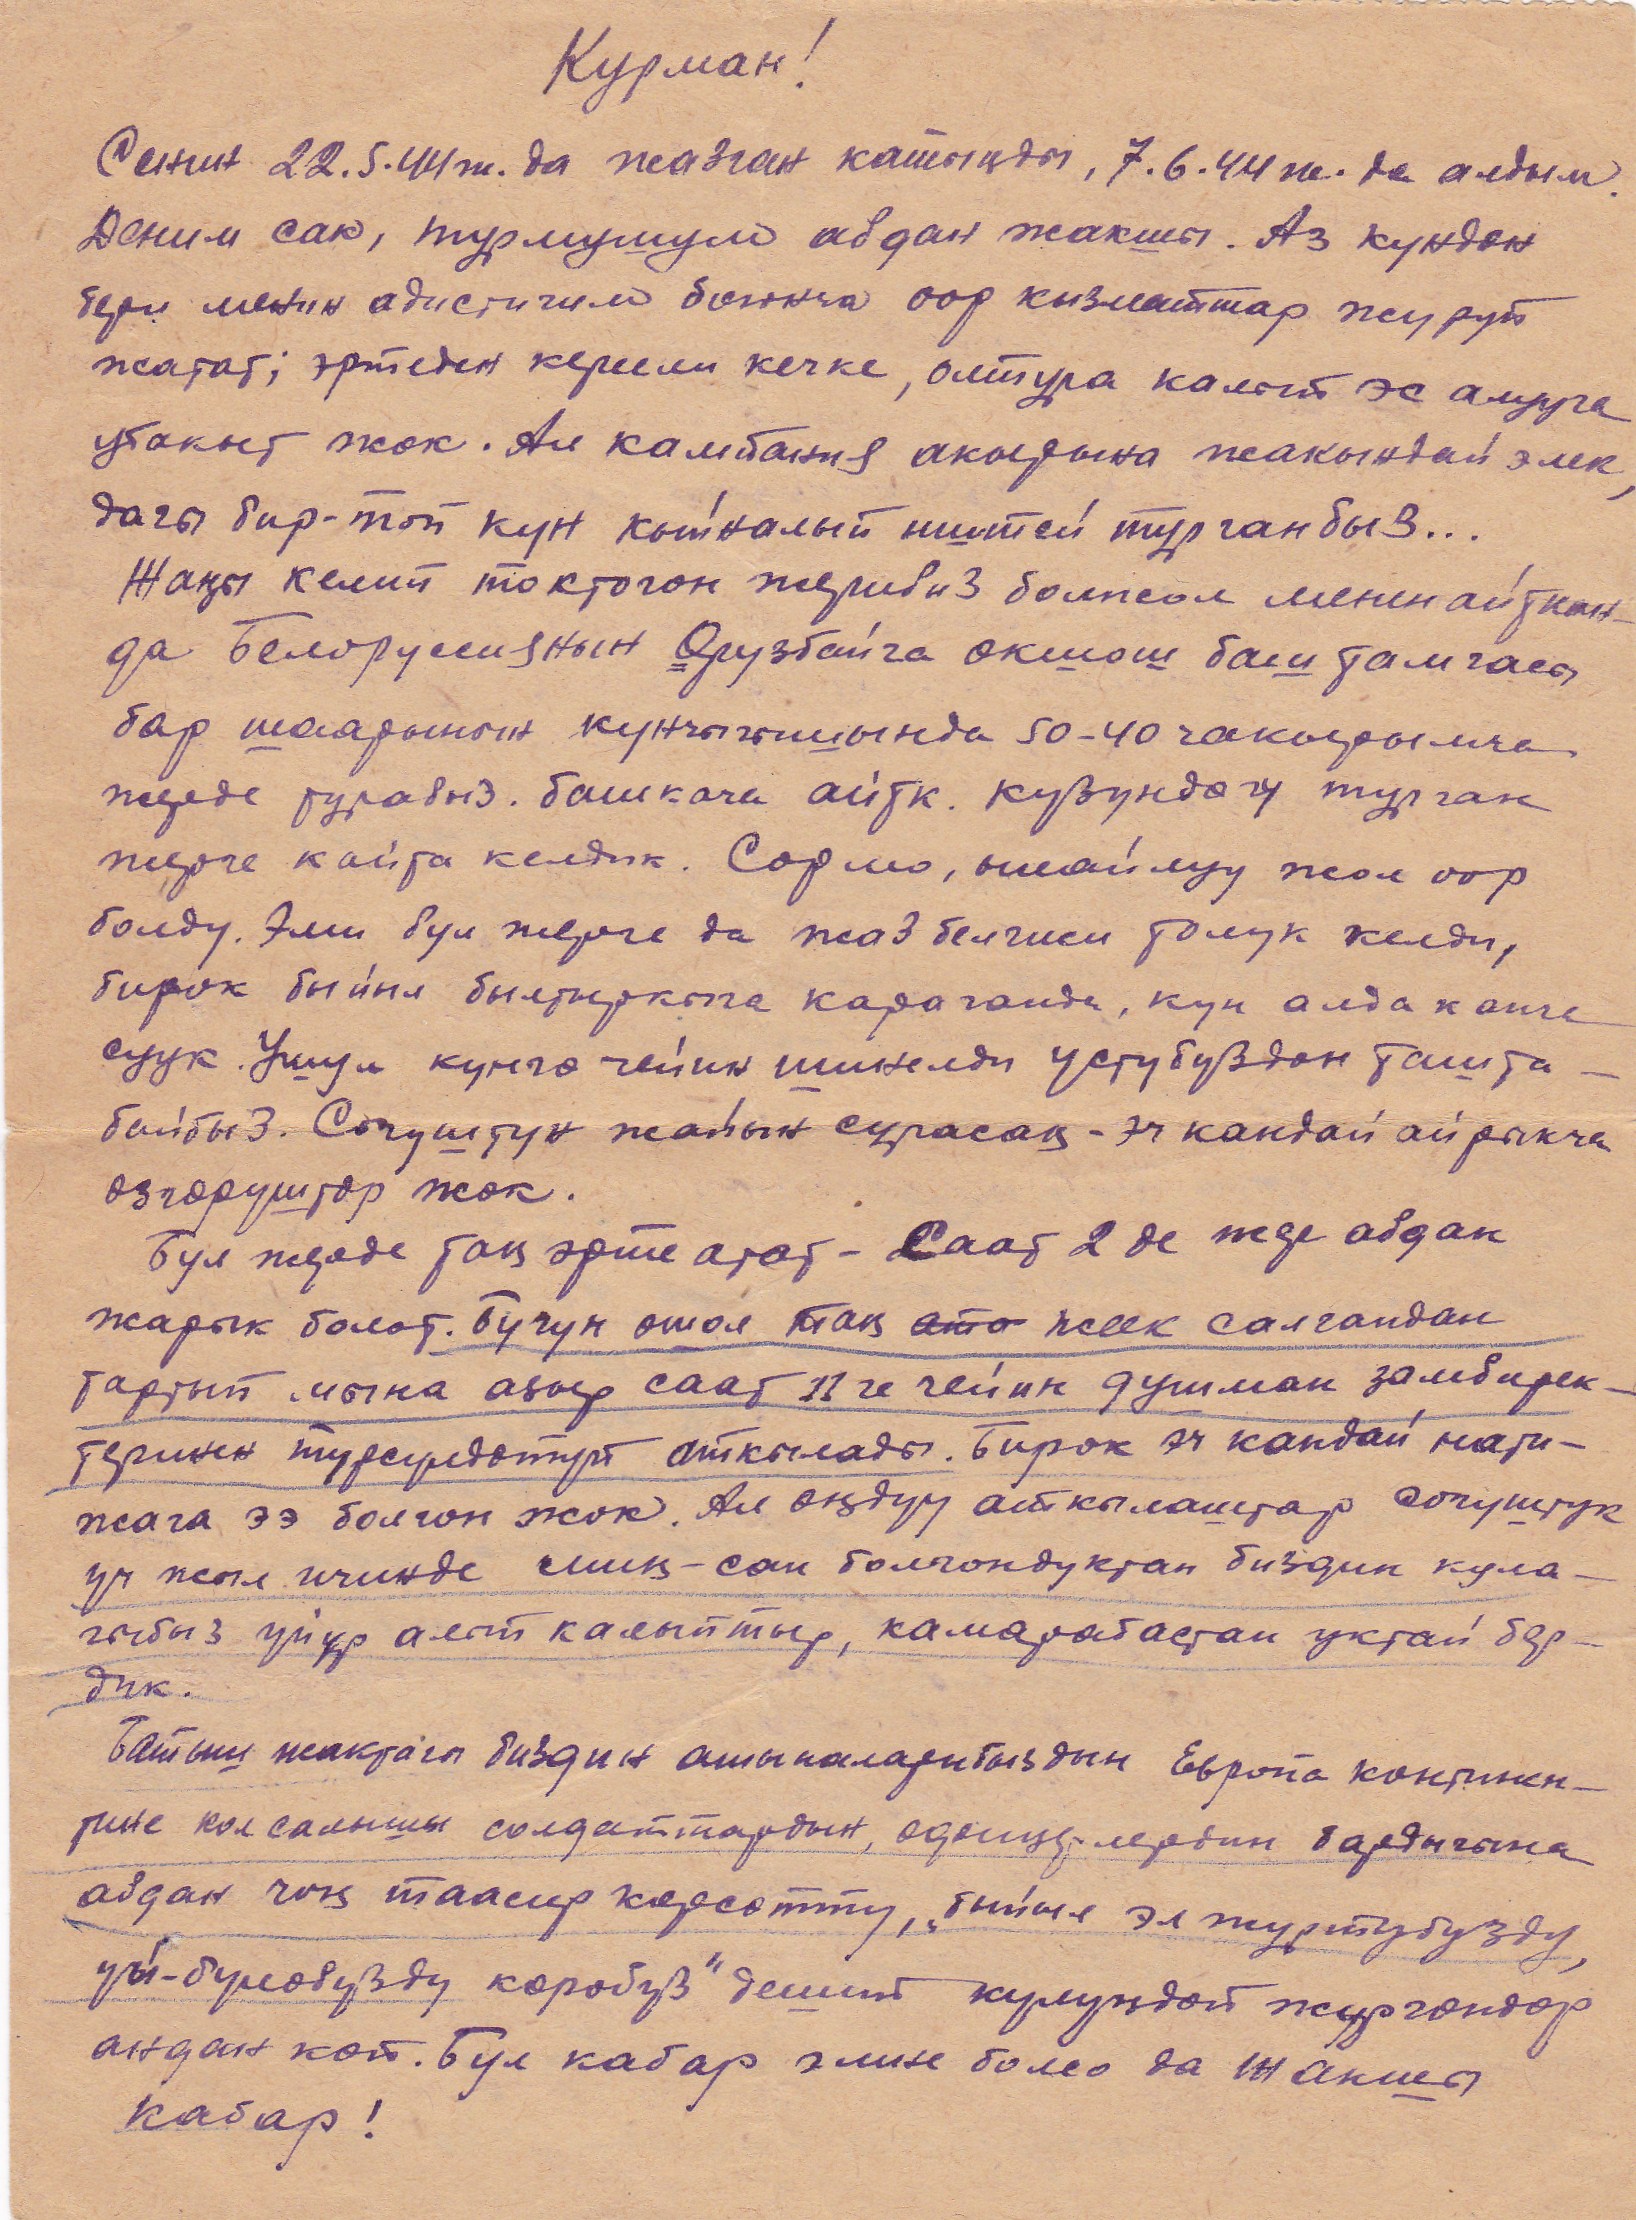 Курман!
Сенин 22.5.44ж. да жазган катыңды, 7.6.44ж. да алдым.
Деним сак, турмушум абдан жакшы. Аз күндөн
бери менин адистигим боюнча оор кызматтар жүрүп
жатат; эртеден кереели кечке, олтура калып эс алууга
убакыт жок. Ал кампания акырына жакындай элек,
дагы бир-топ күн кыйналып иштей турганбыз...
Жаңы келип токтогон жерибиз болжол менен айткан-
да Белоруссиянын Орузбайга окшош баш тамгасы
бар шаарынын күнчыгышында 50-40 чакырымча
жерде турабыз. башкача айтк. күзүндөгү турган
жерге кайта келдик. Сормо, ылайлуу жол оор
болду. Эми бул жерге да жаз белгиси толук келди,
бирок быйыл былтыркыга караганда, күн алда канча
суук. Ушул күнгө чейин шинелди үстүбүздөн ташта-
байбыз. Согуштун жайын сурасаң - эч кандай айрыкча
өзгөрүштөр жок.
Бул жерде таң эрте атат - Саат 2 де жер абдан
жарык болот. Бүгүн ошол таң ата жеек салгандан
тартып мына азыр саат 11 ге чейин душман замбирек-
теринен түрсүлдөтүп аткылады. Бирок эч кандай нати-
жага ээ болгон жок. Ал өңдүү аткылаштар согуштук
үч жыл ичинде миң-сан болгондуктан биздин кула-
гыбыз үйүр алып калыптыр, камарабастан уктай бер-
дик.
Батыш жактагы биздин ашыналарыбыздын Европа континен-
тине кол салышы солдаттардын, бардыгына
абдан чоң таасир көрсөттү, „быйыл эл журтубузду,
үй-бүлөбүздү көрөбүз" дешип күлүңдөп жүргөндөр
андан көп. Бул кабар эмне болсо да жакшы
кабар!